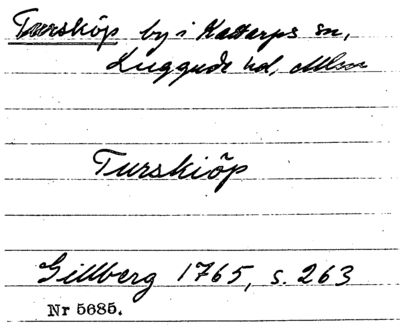 Turskôp by i Kattarps sn,
Luggude hd, Mlm
Turskiöp
Gillberg 1765, s. 263
Nr 5685.